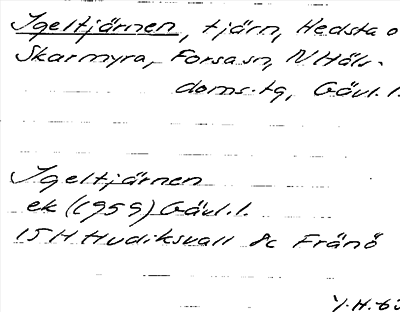 Igeltjärnen, tjärn, Hedsta o
Skarmyra, Forsa sn, N Häls.
doms.tg, Gävl. l.
Igeltjärnen
ek (1959) Gävl. l.
15 H Hudiksvall 8c Fränö